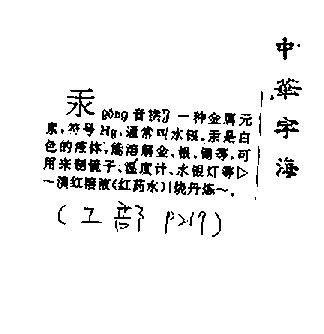 中華字海
汞 gǒng 音拱 一种金属元
素,符号Hg,通常叫水银。汞是白
色的液体,能溶解金、银、锡等,可
用来制镜子、温度计、水银灯等▷
~溴红溶液(红药水)|烧丹炼~。
(工部 P219)